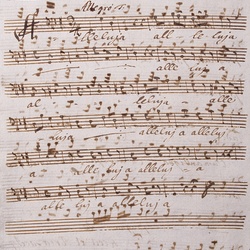 Allegro
Alleluja alle luja
alle luja
al leluja alle
luja alleluja alleluj
a alleluja allelu a
alleluja alleluja